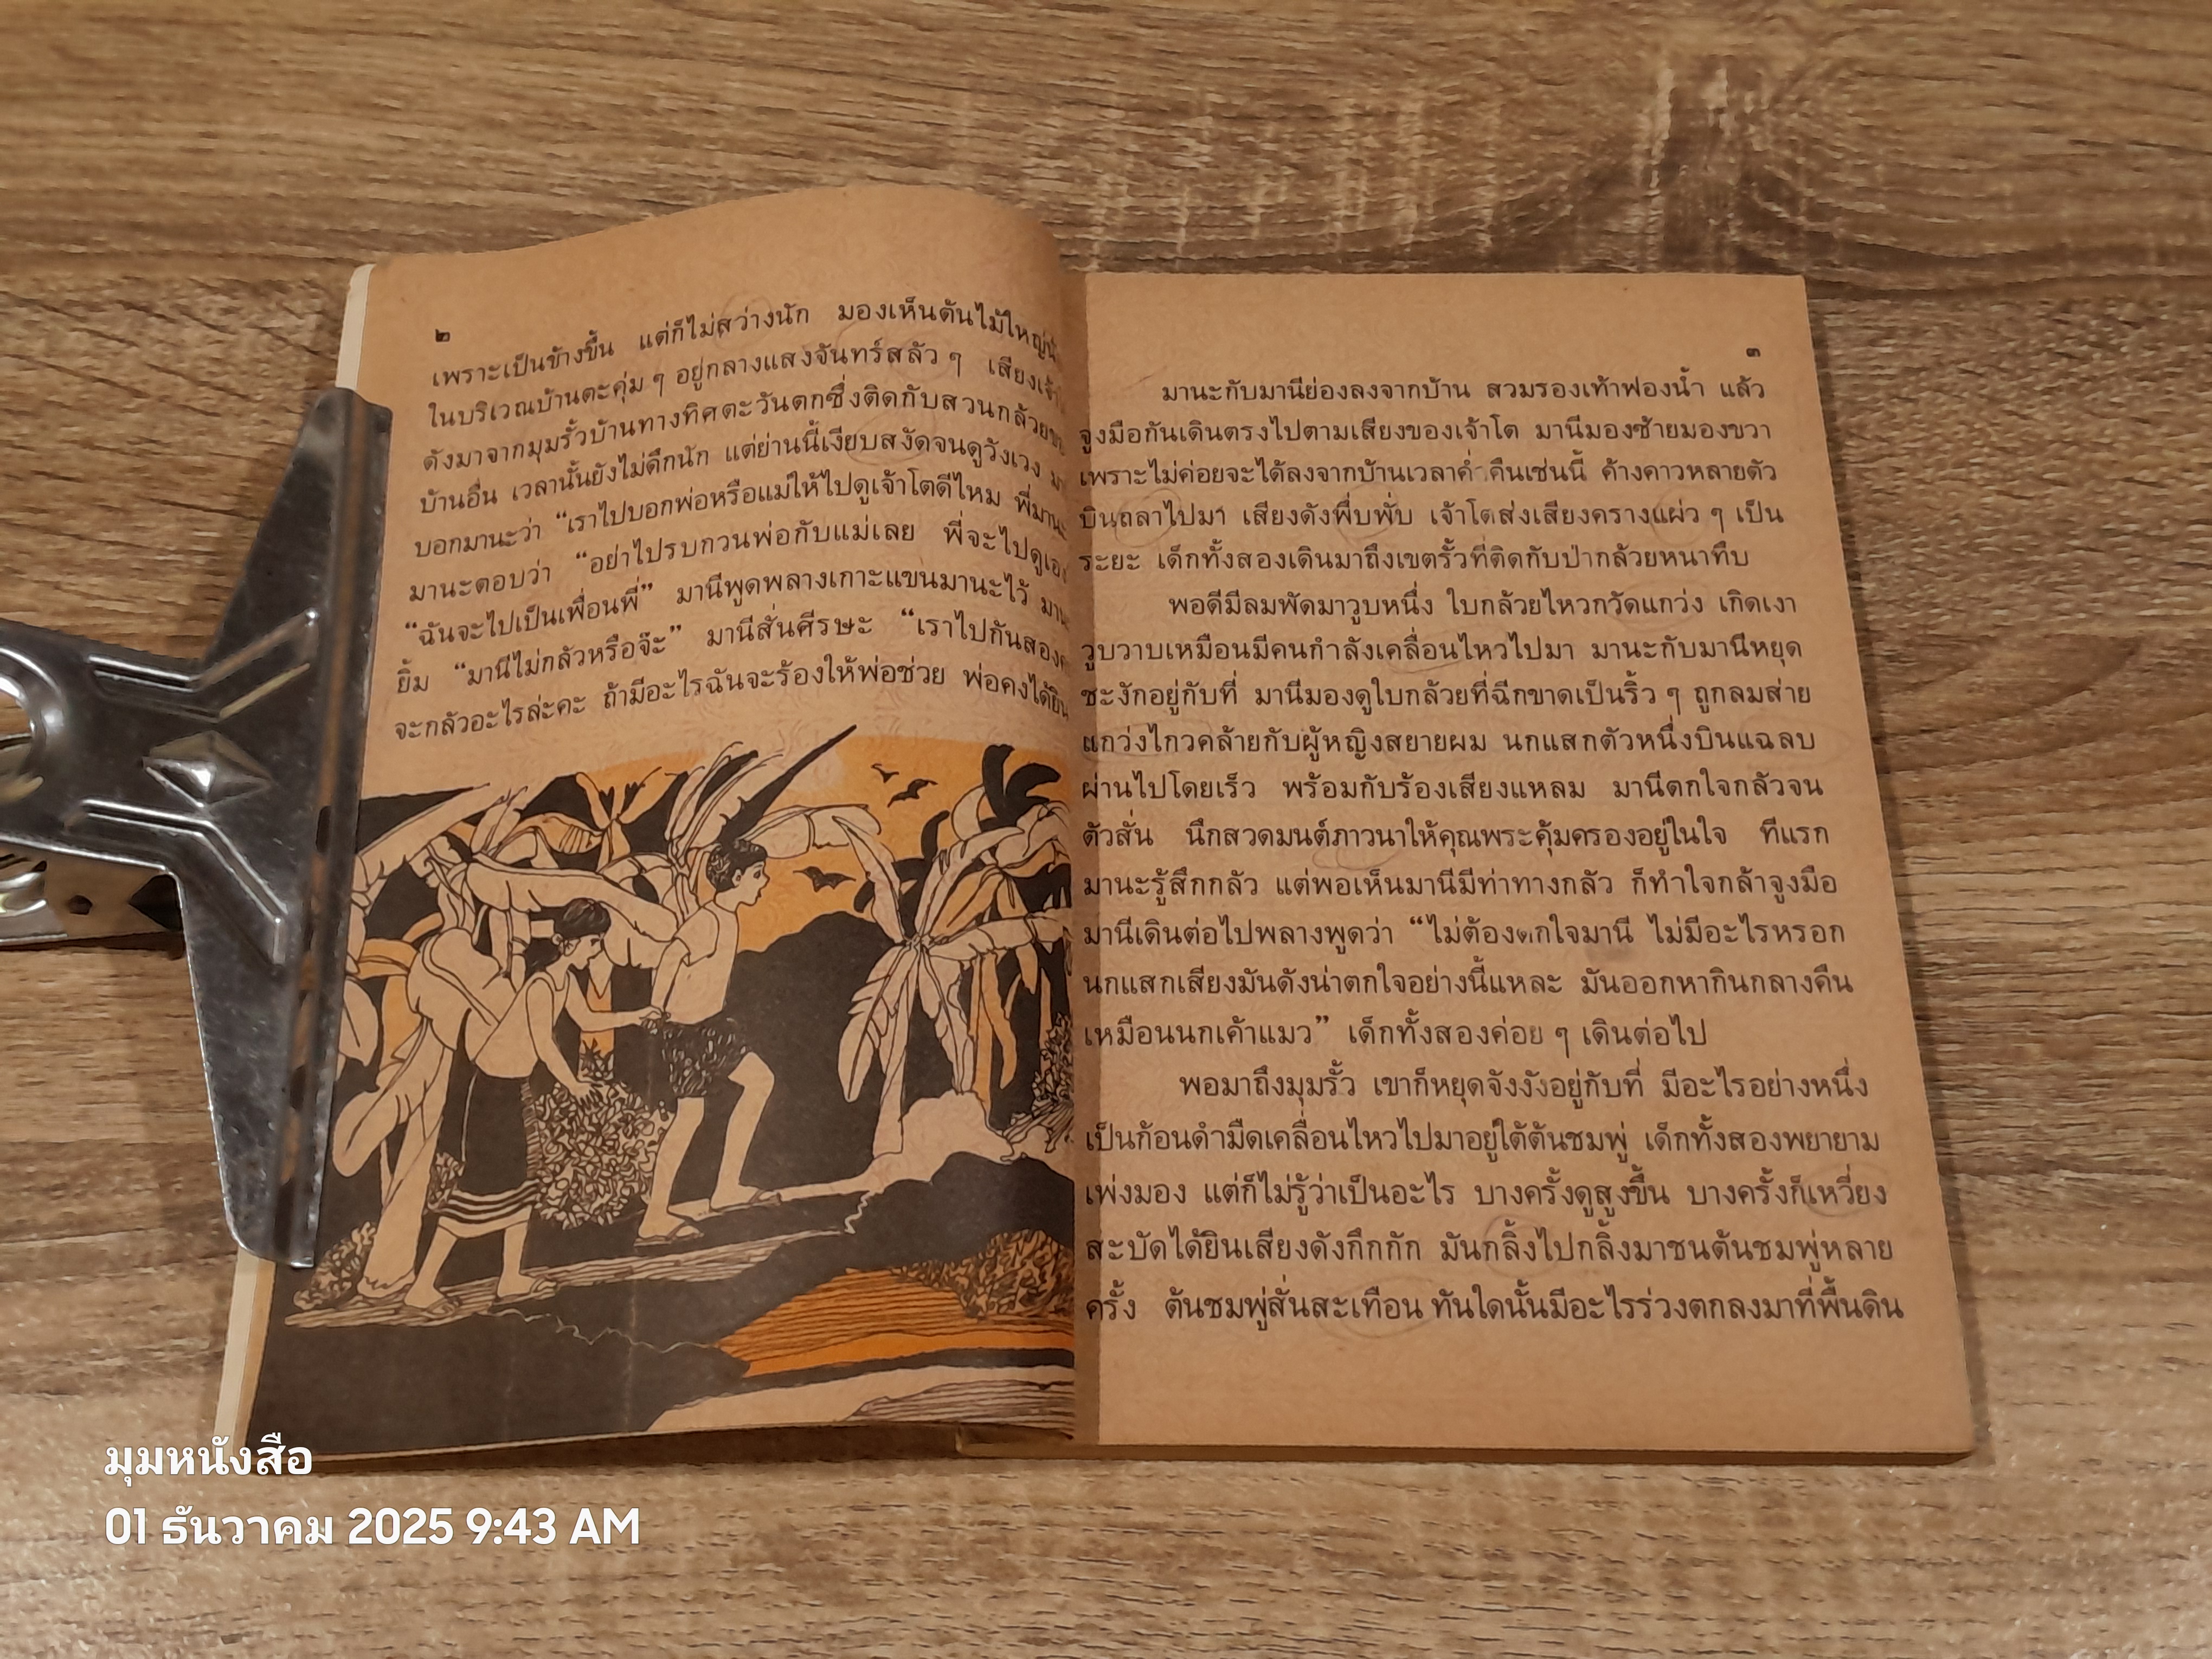 ๒
เพราะเป็นข้างขึ้น แต่ก็ไม่สว่างนัก มองเห็นต้นไม้ใหญ่
ในบริเวณบ้านตะคุ่ม ๆ อยู่กลางแสงจันทร์สลัว ๆ เสียงเจ้า
ดังมาจากมุมรั้วบ้านทางทิศตะวันตกซึ่งติดกับสวนกล้วย
บ้านอื่น เวลานั้นยังไม่ดึกนัก แต่ย่านนี้เงียบสงัดจนดูวังเวง
บอกมานะว่า “เราไปบอกพ่อหรือแม่ให้ไปดูเจ้าโตดีไหม พี่มานะ
มานะตอบว่า “อย่าไปรบกวนพ่อกับแม่เลย พี่จะไปดูเอง
“ฉันจะไปเป็นเพื่อนพี่” มานีพูดพลางเกาะแขนมานะไว้
ยิ้ม “มานีไม่กลัวหรือจ๊ะ” มานีสั่นศีรษะ “เราไปกันสอง
จะกลัวอะไรล่ะคะ ถ้ามีอะไรฉันจะร้องให้พ่อช่วย พ่อคงได้ยิน
๓
มานะกับมานีย่องลงจากบ้าน สวมรองเท้าฟองน้ำ แล้ว
จูงมือกันเดินตรงไปตามเสียงของเจ้าโต มานีมองซ้ายมองขวา
เพราะไม่ค่อยจะได้ลงจากบ้านเวลาค่ำคืนเช่นนี้ ค้างคาวหลายตัว
บินถลาไปมา เสียงดังพึ่บพั่บ เจ้าโตส่งเสียงครางแผ่ว ๆ เป็น
ระยะ เด็กทั้งสองเดินมาถึงเขตรั้วที่ติดกับป่ากล้วยหนาทึบ
พอดีมีลมพัดมาวูบหนึ่ง ใบกล้วยไหวกวัดแกว่ง เกิดเงา
วูบวาบเหมือนมีคนกำลังเคลื่อนไหวไปมา มานะกับมานีหยุด
ชะงักอยู่กับที่ มานีมองดูใบกล้วยที่ฉีกขาดเป็นริ้ว ๆ ถูกลมส่าย
แกว่งไกวคล้ายกับผู้หญิงสยายผม นกแสกตัวหนึ่งบินแฉลบ
ผ่านไปโดยเร็ว พร้อมกับร้องเสียงแหลม มานีตกใจกลัวจน
ตัวสั่น นึกสวดมนต์ภาวนาให้คุณพระคุ้มครองอยู่ในใจ ทีแรก
มานะรู้สึกกลัว แต่พอเห็นมานีมีท่าทางกลัว ก็ทำใจกล้าจูงมือ
มานีเดินต่อไปพลางพูดว่า “ไม่ต้องตกใจมานี ไม่มีอะไรหรอก
นกแสกเสียงมันดังน่าตกใจอย่างนี้แหละ มันออกหากินกลางคืน
เหมือนนกเค้าแมว” เด็กทั้งสองค่อย ๆ เดินต่อไป
พอมาถึงมุมรั้ว เขาก็หยุดจังงังอยู่กับที่ มีอะไรอย่างหนึ่ง
เป็นก้อนดำมืดเคลื่อนไหวไปมาอยู่ใต้ต้นชมพู่ เด็กทั้งสองพยายาม
เพ่งมอง แต่ก็ไม่รู้ว่าเป็นอะไร บางครั้งดูสูงขึ้น บางครั้งก็เหวี่ยง
สะบัดได้ยินเสียงดังกึกกัก มันกลิ้งไปกลิ้งมาชนต้นชมพู่หลาย
ครั้ง ต้นชมพู่สั่นสะเทือน ทันใดนั้นมีอะไรร่วงตกลงมาที่พื้นดิน
มุมหนังสือ
01 ธันวาคม 2025 9:43 AM